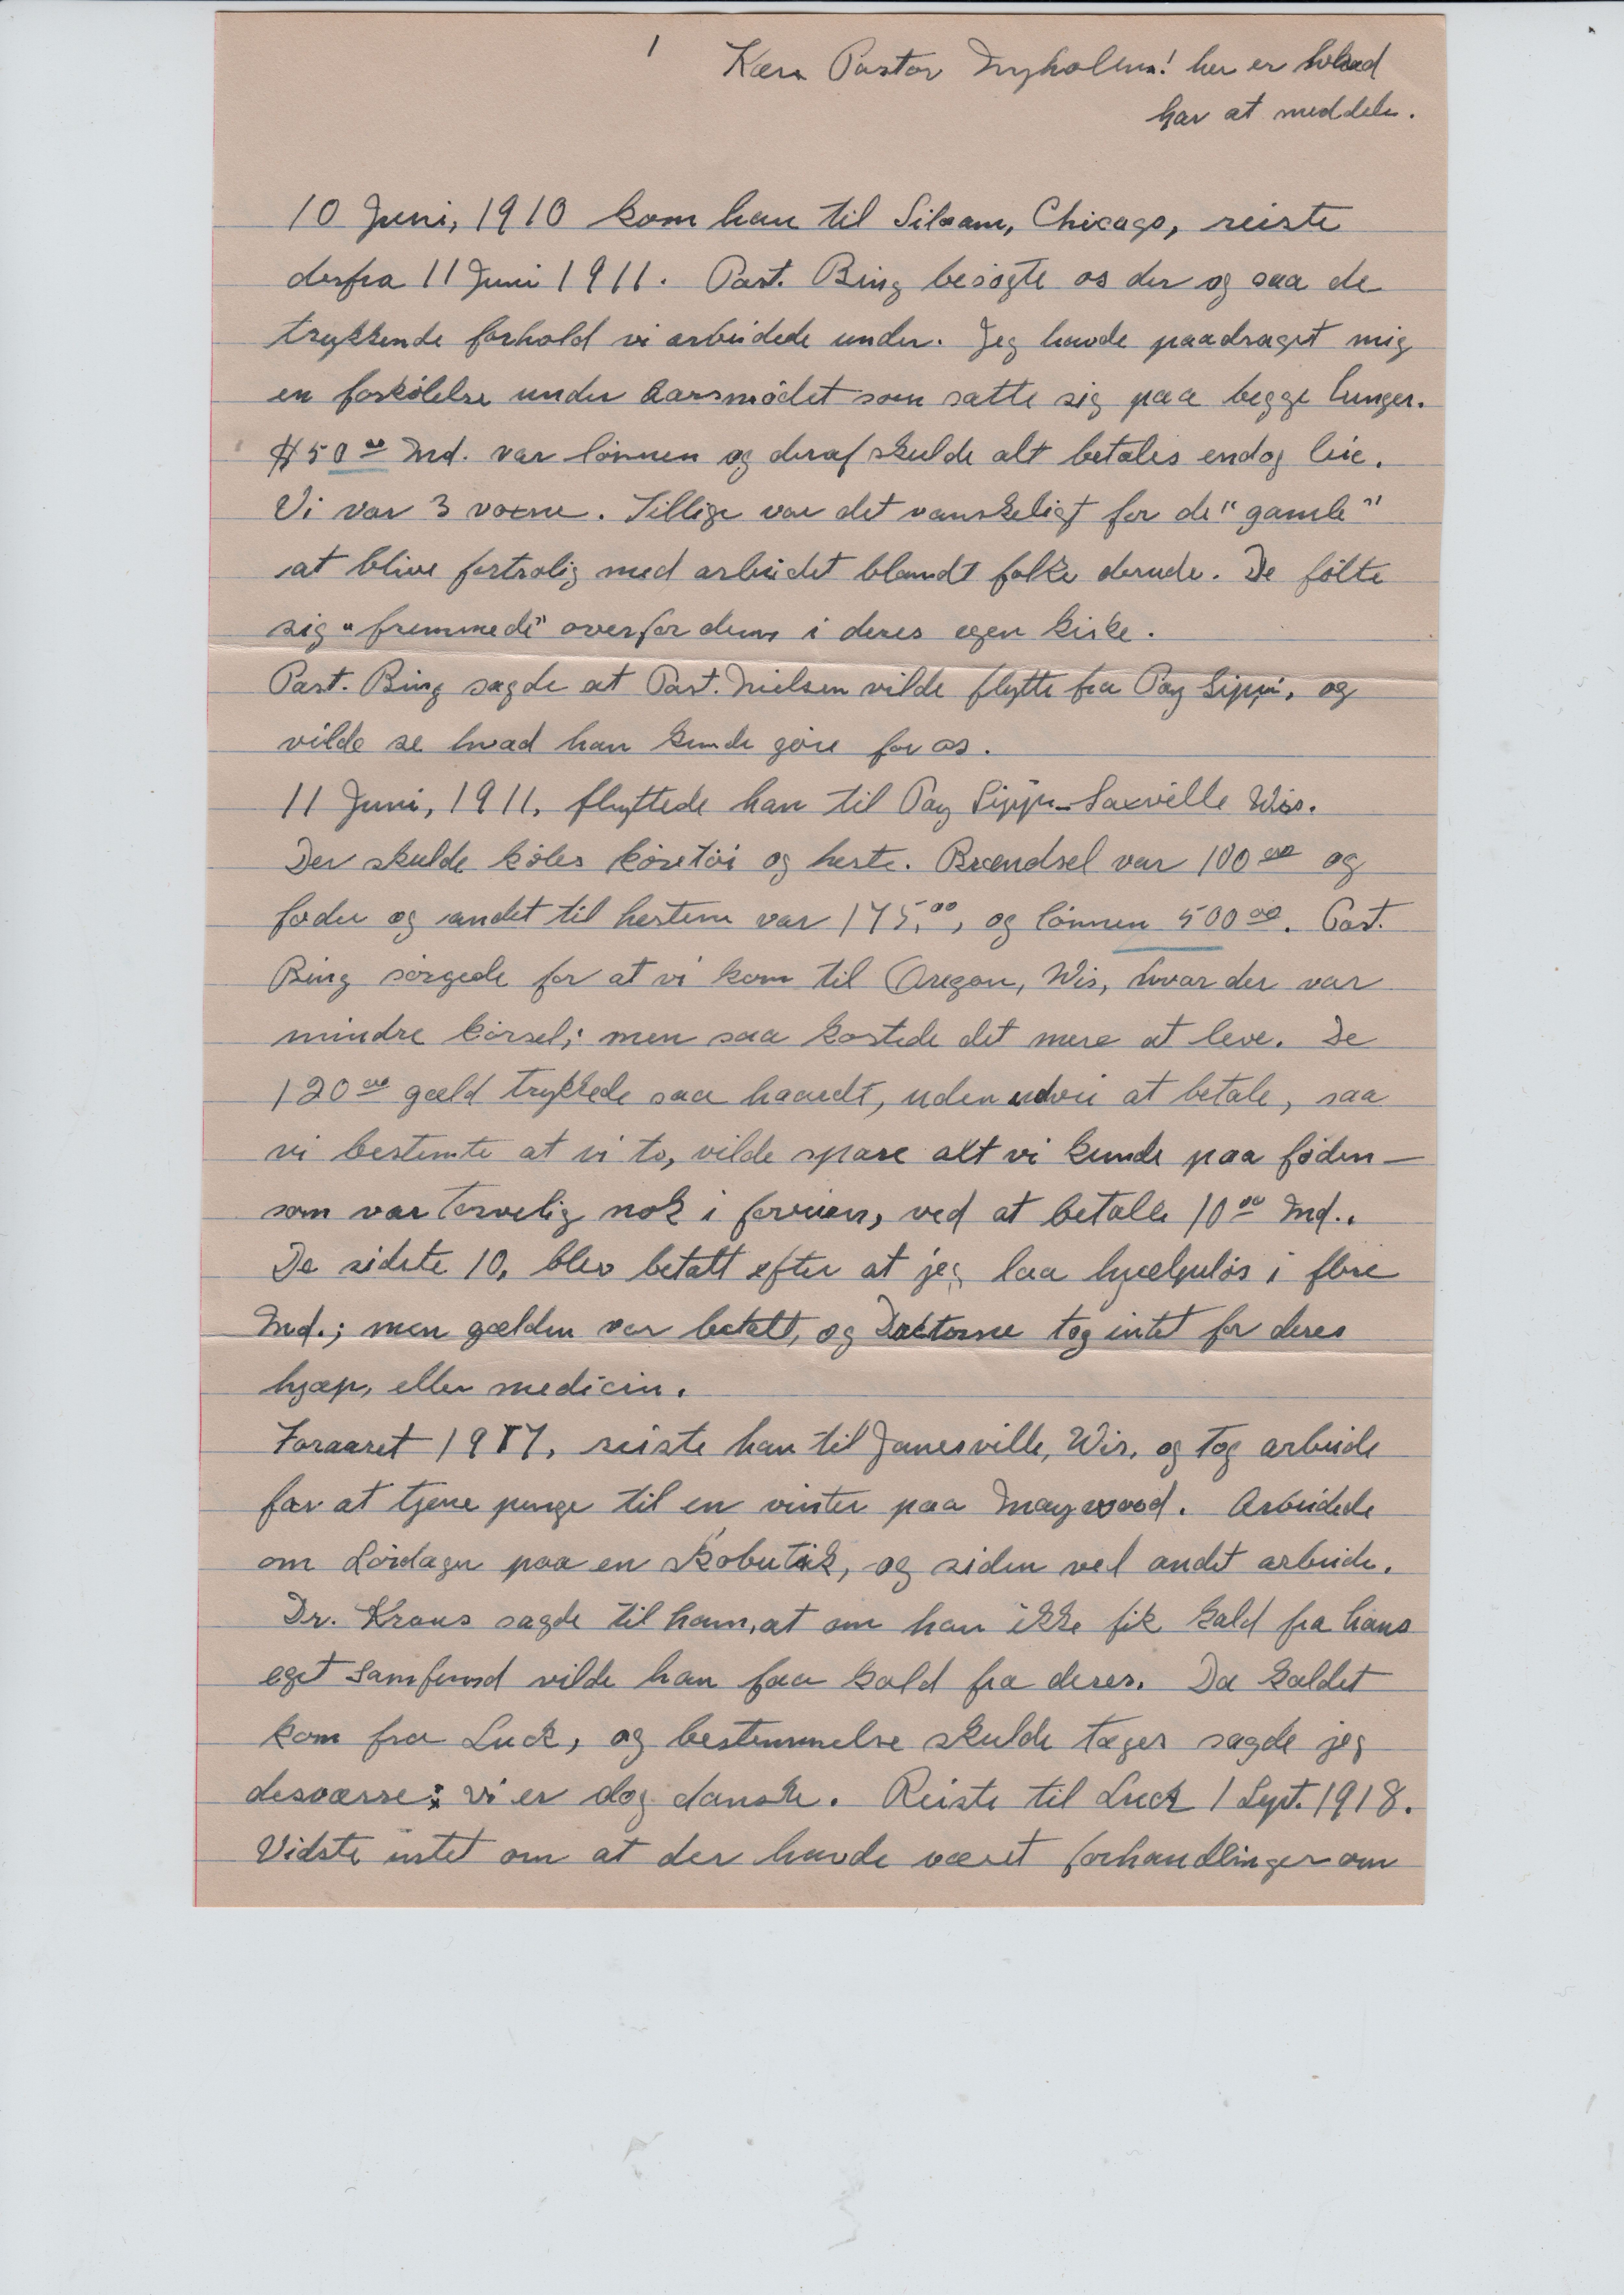 1
Kære Pastor Nyholm! her er hvad
har at meddele.
10 Juni, 1910 kom han til Siloam, Chicago, reiste
derfra 11 Juni 1911. Past. Bing besögte os der og saa de
trykkende forhold vi arbeidede under. Jeg havde paadraget mig
en forkölelse under Aarsmödet som satte sig paa begge lunger.
$50.00 Md. var lönnen og deraf skulde alt betales endog leie.
Vi var 3 voxne. Tillige var det vanskeligt for de "gamle"
at blive fortrolig med arbeidet blandt folke derude. De fölte
sig "fremmede" overfor dem i deres egen kirke.
Past. Bing sagde at Past. Nielsen vilde flytte fra Poy Sippi, og
vilde se hvad han kunde göre for os.
11 Juni, 1911, flyttede han til Poy Sippi-Saxville Wis.
Der skulde köbes köretöi og heste. Brændsel var 100.00 og
foder og andet til hestene var 175.00, og lönnen 500.00. Past.
Bing sörgede for at vi kom til Oregon, Wis, hvor der var
mindre körsel; men saa kostede det mere at leve. De
120.00 gæld trykkede saa haardt, uden udvei at betale, saa
vi bestemte at vi to, vilde spare alt vi kunde paa föden—
som var tarvelig nok i forveien, ved at betale 10.00 Md..
De sidste 10, blev betalt efter at jeg laa hjælpelös i flere
Md.; men gælden var betalt, og Doktorne tog intet for deres
hjæp, eller medicin.
Foraaret 1917, reiste han til Janesville, Wis, og tog arbeide
for at tjene penge til en vinter paa Maywood. Arbeidede
om Lördagen paa en Skobutik, og siden ved andet arbeide.
Dr. Kraus sagde til ham, at om han ikke fik kald fra hans
eget Samfund vilde han faa kald fra deres. Da kaldet
kom fra Luck, og bestemmelse skulde tages sagde jeg
desværre: vi er dog danske. Reiste til Luck 1 Sept. 1918.
Vidste intet om at der havde været forhandlinger om